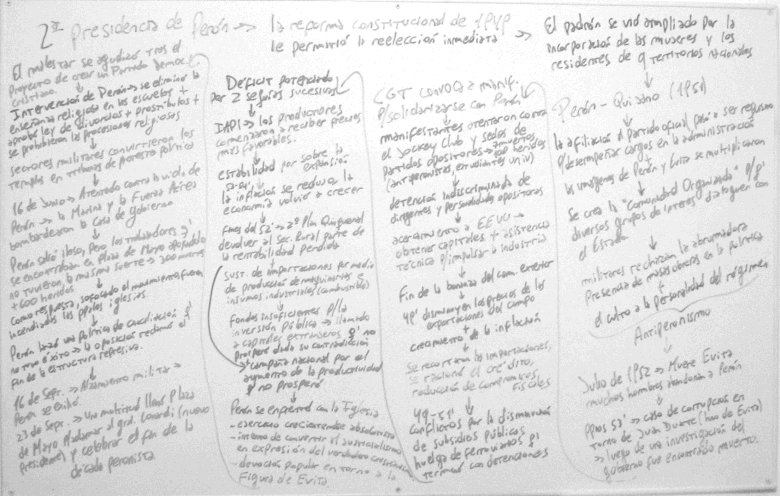 2ª Presidencia de Perón → la reforma constitucional de 1949
le permitió la reelección inmediata →
El padrón se vió ampliado por la
incorporación de las mujeres y los
residentes de 9 territorios nacionales
Perón - Quijano (1951)
la afiliación al partido oficial pasó a ser requisito
p/desempeñar cargos en la administración
las imágenes de Perón y Evita se multiplicaron
Se crea la "Comunidad Organizada" p/q'
diversos grupos de interés dialoguen con
el Estado
militares rechazan la abrumadora
presencia de masas obreras en la política
+
el culto a la personalidad del régimen
Antiperonismo
Julio de 1952 → Muere Evita
muchos hombres abandonan a Perón
ppios 53' → caso de corrupción en
torno de Juan Duarte (hno de Evita)
→ luego de una investigación del
gobierno fue encontrado muerto.
CGT convoca a manif.
p/solidarizarse con Perón
manifestantes atentaron contra
el Jockey Club y sedes de
partidos opositores →
(antiperonistas, estudiantes univ)
detención indiscriminada de
dirigentes y personalidades opositoras
acercamiento a EEUU →
obtener capitales + asistencia
técnica p/impulsar la industria
Fin de la bonanza del com. exterior
49' disminuyen los precios de las
exportaciones del campo
+
crecimiento de la inflación
Se recortan las importaciones,
se raciona el crédito,
reducción de compromisos
fiscales
49-51'
Conflictos por la disminución
de subsidios públicos
huelga de ferroviarios
terminar con detenciones
Déficit potenciado
por 2 sequías sucesivas
IAPI → los productores
comenzaron a recibir precios
más favorables.
estabilidad por sobre la
expansión
la inflación se redujo, la
economía volvió a crecer
fines del 52' → 2º Plan Quinquenal
devolver al Sec. Rural parte de
la rentabilidad perdida
sust. de importaciones por medio
de producción de maquinarias e
insumos industriales (combustible)
fondos insuficientes p/la
inversión pública → llamado
a capitales extranjeros q' no
prosperó dado su contradicción
→ campaña nacional por el
aumento de la productividad
q' no prosperó
Perón se enfrentó con la Iglesia
- ejercicio crecientemente absolutista
- intento de convertir el justicialismo
en expresión del verdadero cristianismo
- devoción popular en torno a la
Figura de Evita.
El malestar se agudizó tras el
proyecto de crear un Partido Democ.
cristiano.
Intervención de Perón → se eliminó la
enseñanza religiosa en las escuelas +
aprobó ley de divorcios + prostíbulos +
se prohibieron las procesiones religiosas
sectores militares convirtieron los
templos en tribunas de protesta política
16 de Junio → Atentado contra la vida de
Perón → la Marina y la Fuerza Aérea
bombardearon la Casa de gobierno
Perón salió ileso, pero los trabajadores q'
se encontraban en plaza de Mayo apoyándolo
no tuvieron la misma suerte → 300 muertos
+ 600 heridos
Como respuesta, sofocado el movimiento fueron
incendiadas las pples. iglesias.
Perón lanzó una Política de Conciliación q'
no tuvo éxito → la oposición reclamó el
fin de la estructura represiva.
16 de Sept. → Alzamiento militar →
Perón se exilió.
23 de Sept. → Una multitud llenó Plaza
de Mayo p/aclamar al gral. Lonardi (nuevo
Presidente) y celebrar el fin de la
década peronista